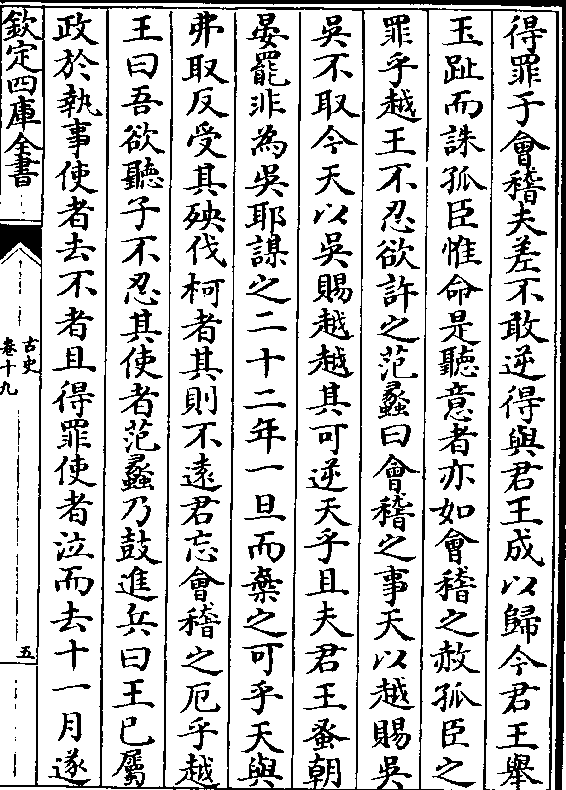 得罪于會稽夫差不敢逆得與君王成以歸今君王舉
玉趾而誅孤臣惟命是聽意者亦如會稽之赦孤臣之
罪乎越王不忍欲許之范蠡曰會稽之事天以越賜吳
吳不取今天以吳賜越越其可逆天乎且夫君王蚤朝
晏罷非為吳耶謀之二十二年一旦而棄之可乎天與
弗取反受其殃伐柯者其則不遠君忘會稽之厄乎越
王曰吾欲聽子不忍其使者范蠡乃鼓進兵曰王已屬
政於執事使者去不者且得罪使者泣而去十一月遂
欽定四庫全書
古史
卷十九
五